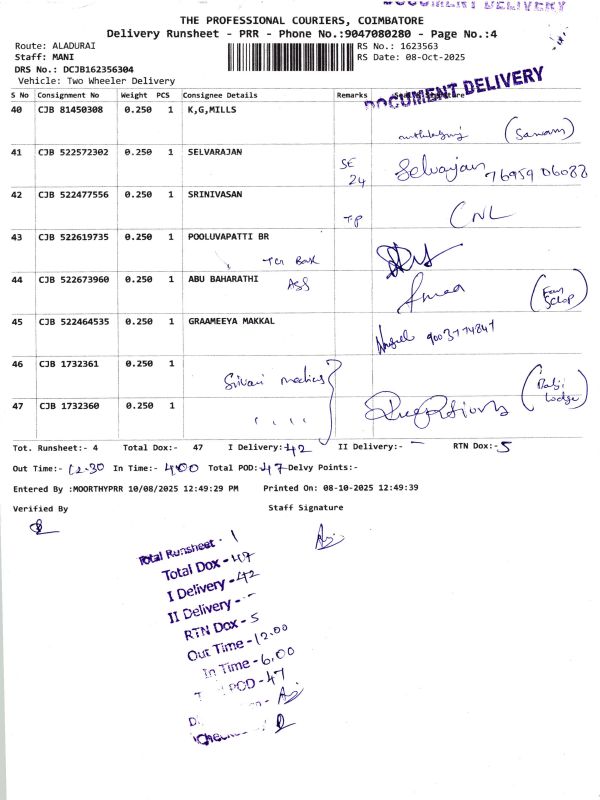 DOCUMENT DELIVERY
THE PROFESSIONAL COURIERS, COIMBATORE
Delivery Runsheet - PRR - Phone No.:9047080280 - Page No.:4
Route: ALADURAI
RS No.: 1623563
Staff: MANI
RS Date: 08-Oct-2025
DRS No.: DCJB162356304
Vehicle: Two Wheeler Delivery
DOCUMENT DELIVERY
S No Consignment No Weight PCS Consignee Details Remarks
40 CJB 81450308 0.250 1 K,G,MILLS
41 CJB 522572302 0.250 1 SELVARAJAN SE 24 Selvarajan 76959 06088
42 CJB 522477556 0.250 1 SRINIVASAN TP CNL
43 CJB 522619735 0.250 1 POOLUVAPATTI BR
Box
44 CJB 522673960 0.250 1 ABU BAHARATHI
45 CJB 522464535 0.250 1 GRAAMEEYA MAKKAL
46 CJB 1732361 0.250 1
47 CJB 1732360 0.250 1
Tot. Runsheet:- 4 Total Dox:- 47 I Delivery:- 42 II Delivery:- - RTN Dox:- 5
Out Time:- 12.30 In Time:- 4.00 Total POD:- 47 Delvy Points:-
Entered By :MOORTHYPRR 10/08/2025 12:49:29 PM Printed On: 08-10-2025 12:49:39
Verified By Staff Signature
Total Runsheet - 1
Total Dox - 47
I Delivery - 42
II Delivery - -
RTN Dox - 5
Out Time - 12.00
In Time - 6.00
POD - 47